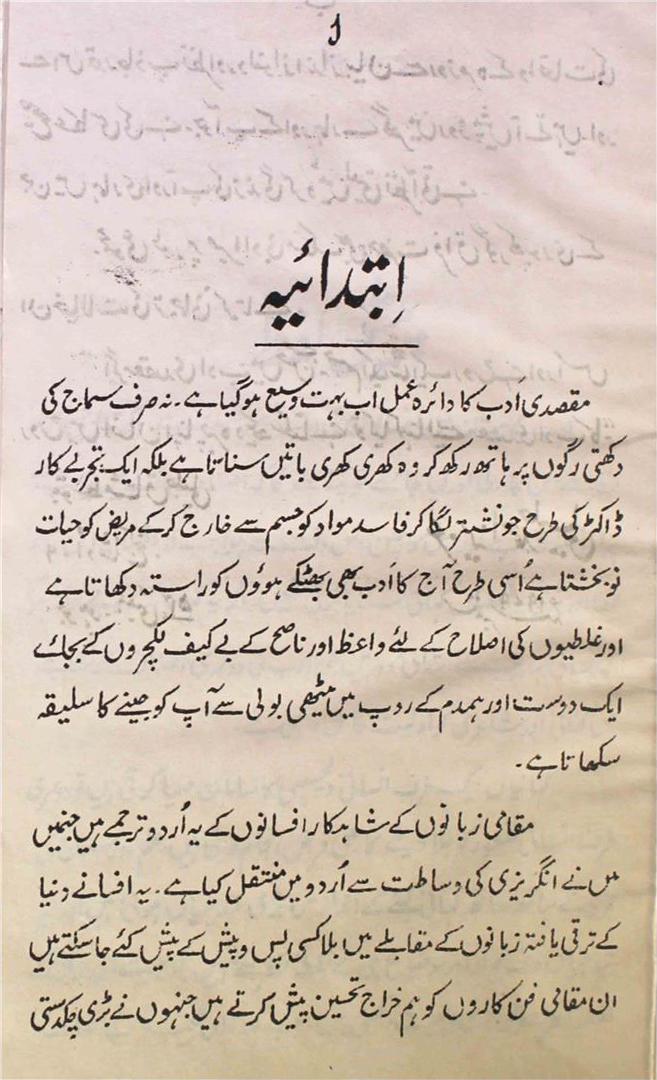 ا
اِبتدائیہ
مقصدی اَدب کا دائرہ عمل اب بہت وسیع ہوگیا ہے۔ نہ صرف سماج کی
دکھتی رگوں پر ہاتھ رکھ کر وہ کھری کھری باتیں سناتا ہے بلکہ ایک تجربے کار
ڈاکٹر کی طرح جو نشتر لگا کر فاسد مواد کو جسم سے خارج کرکے مریض کو حیات
نو بخشتا ہے اُسی طرح آج کا اَدب بھی بھٹکے ہوؤں کو راستہ دکھاتا ہے
اور غلطیوں کی اصلاح کے لئے واعظ اور ناصح کے بے کیف لکچروں کے بجائے
ایک دوست اور ہمدم کے روپ میں میٹھی بولی سے آپ کو جینے کا سلیقہ
سکھاتا ہے۔
مقامی زبانوں کے شاہدکار افسانوں کے یہ اُردو ترجمے ہیں جنہیں
میں نے انگریزی کی وساطت سے اُردو میں منتقل کیا ہے۔ یہ افسانے دنیا
کے ترقی یافتہ زبانوں کے مقابلے میں بلاکسی پس و پیش کے پیش کئے جاسکتے ہیں
ان مقامی فن کاروں کو ہم خراج تحسین پیش کرتے ہیں جنہوں نے بڑی چکدستی